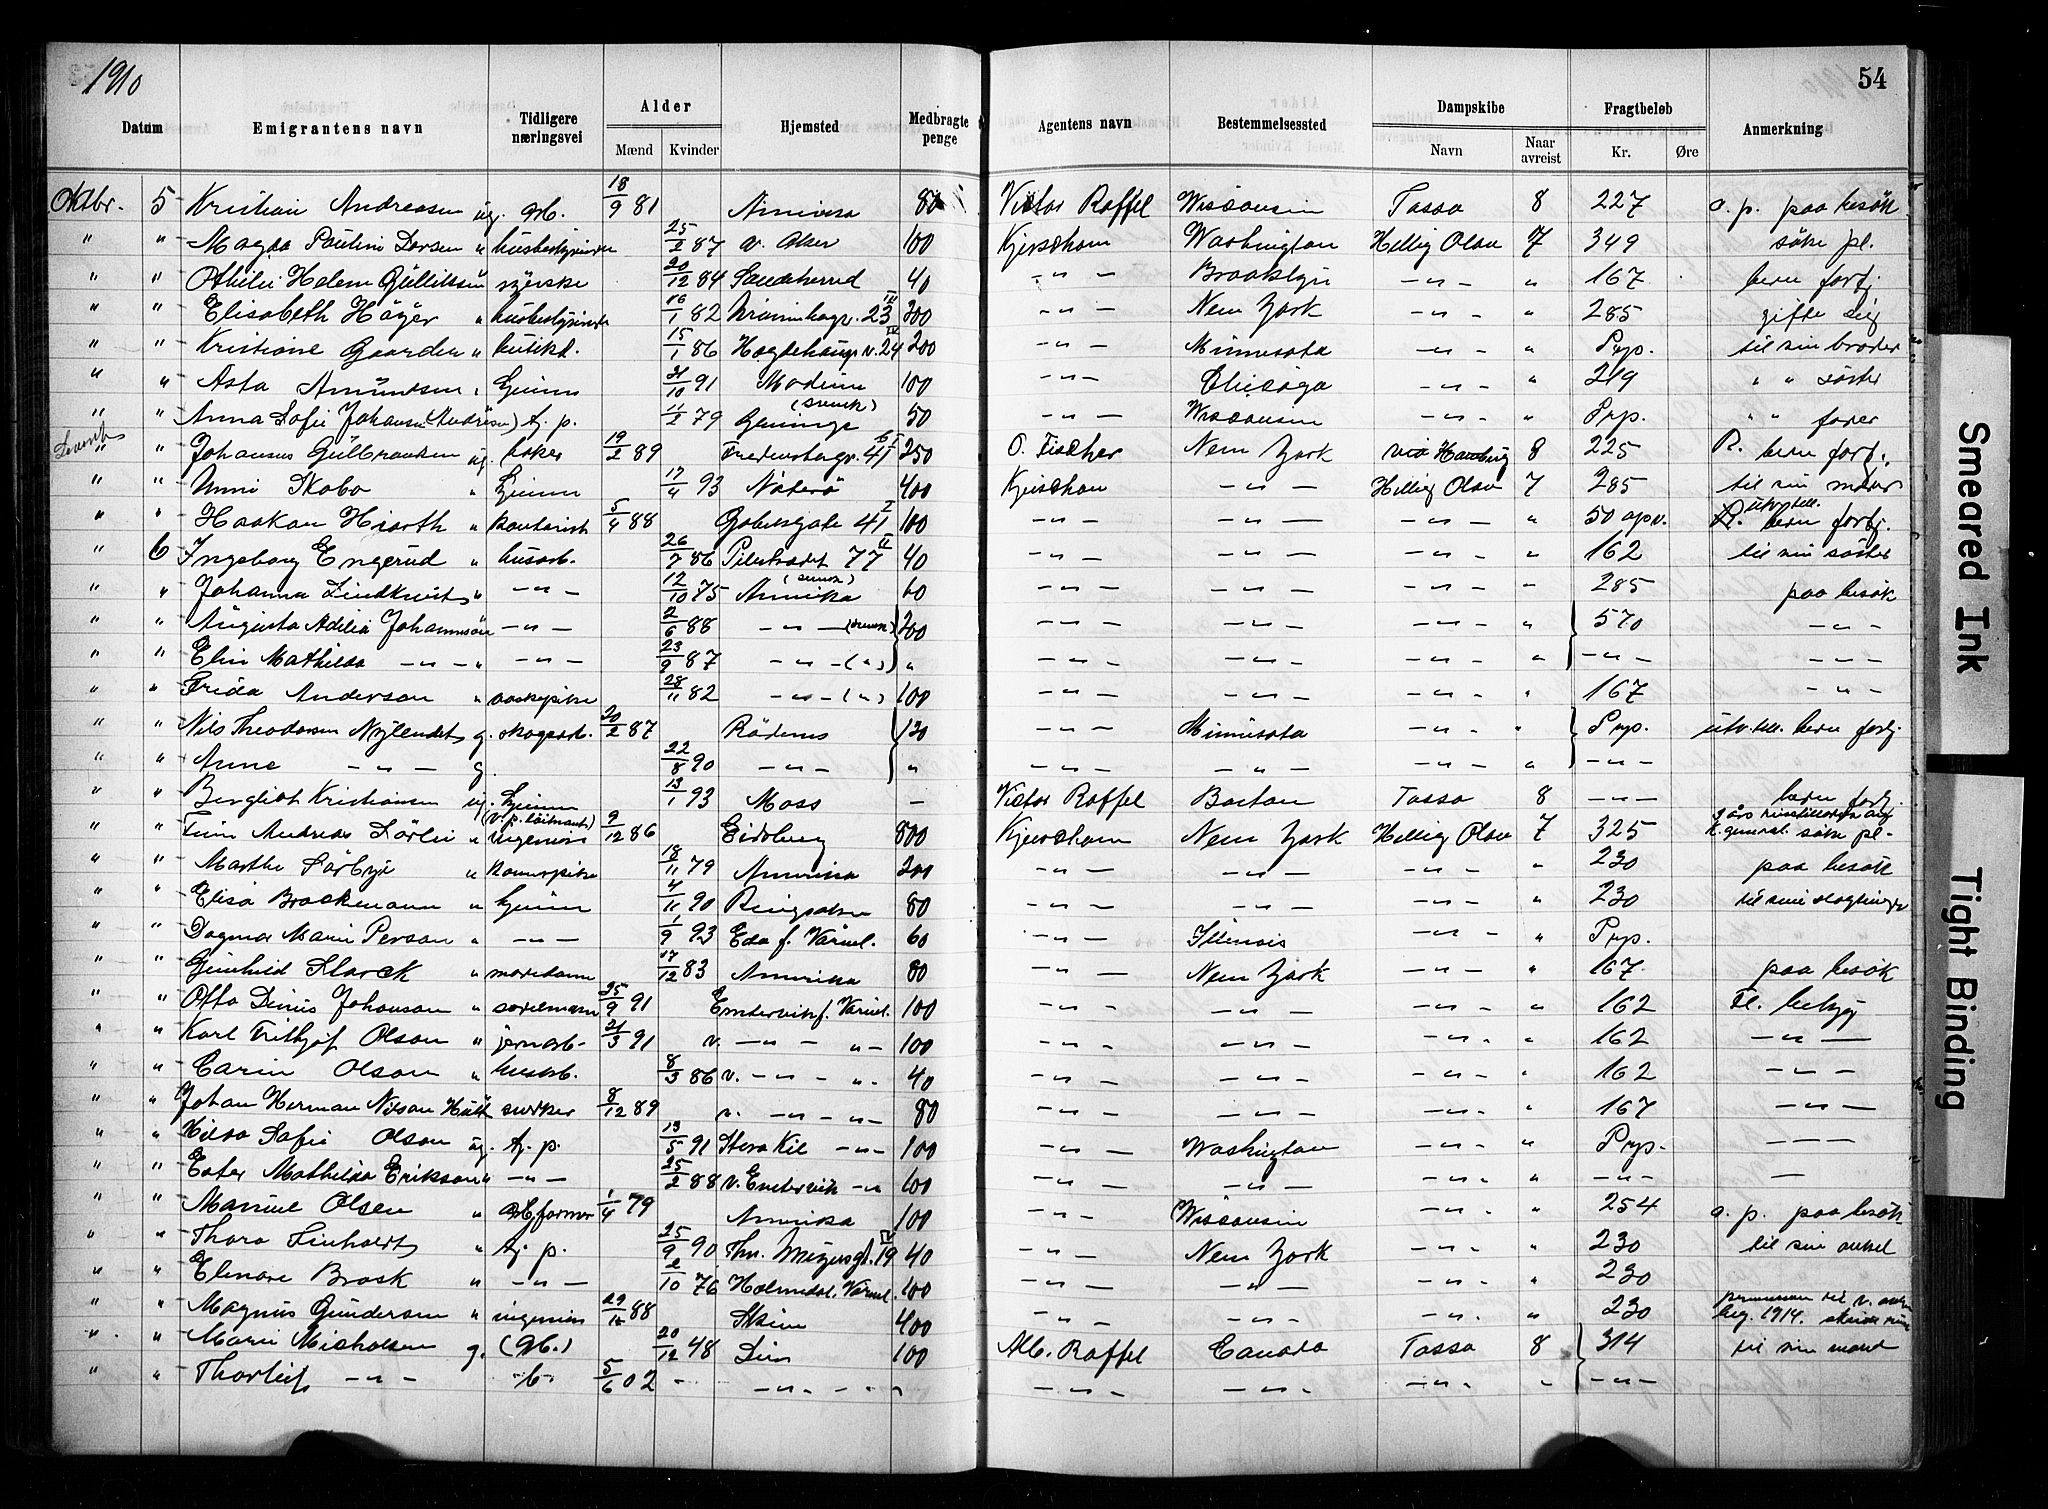 1910
54
Datum Emigrantens navn Tidligere næringsvei Alder Mænd Kvinder Hjemsted Medbragte penge Agentens navn Bestemmelsessted Dampskibe Navn Naar avreist Fragtbeløb Kr. Øre Anmerkning
Oktbr. 5 Kristian Andreasen ug. 18/9 81 Amerika 80 Victor Roffel Wisconsin Tasso 8 227 a. p. paa besök
" " Magda Pauline Larsen " husbestyrinde 25/2 87 v. Aker 100 Kjerschow Washington Hellig Olav 7 349 söke pl.
" " Othilie Helene Gulliksen " syerske 20/12 84 Sandeherred 40 -"- Brooklyn -"- " 167 bedre fortj.
" " Elisabeth Höyer " husbestyrinde 16/1 82 23 III 300 -"- New York -"- " 285 gifte sig
" " Kristiane Gaarder " butikd. 15/1 86 Hegdehaugsv. 24 IV 200 -"- Minnesota -"- " Pryp. til sin broder
" " Asta Amundsen " hjemme 21/10 91 Modum 100 -"- Chicago -"- " 219 " " söster
" " Anna Sofie Johansen (Andersen) tj. p. 11/2 79 (svensk) 50 -"- Wisconsin -"- " Pryp. " " fader
" " Johannes Gulbrandsen ug. baker 19/2 89 41 250 O. Fischer New York via Hamburg 8 225 R. bedre fortj.
" " Unni Skabo " hjemme 17/4 93 Nöterö 400 Kjerschow -"- Hellig Olav 7 285 til sin moder
" " Haakon Hiorth " kontorist 5/4 88 Gabelsgate 41 I 100 -"- -"- -"- " 50 opv. utv. till. bedre fortj.
" 6 Ingeborg Engerud " husarb. 26/7 86 Pilestrædet 77 II 40 -"- -"- -"- " 162 til sin söster
" " Johanna Lindkvist " -"- 12/10 75 Amerika (svensk) 60 -"- -"- -"- " 285 paa besök
" " Augusta Adelia Johannson -"- 2/6 88 -"- (svensk) 200 -"- -"- -"- " 570 -"-
" " Elin Mathilda -"- " -"- 23/9 87 -"- (") " -"- -"- -"- " -"- -"-
" " Frida Anderson " vaskepike 28/11 82 -"- (") 100 -"- -"- -"- " 167 -"-
" " Nils Theodorsen Nyléndet g. skogarb. 20/2 87 Rödenes 120 -"- Minnesota -"- " Pryp. utv. till. bedre fortj.
" " Anne -"- g. 22/8 90 -"- " -"- -"- -"- " -"-
" " Bergliot Kristiansen ug. hjemme 13/1 93 Moss - Victor Roffel Boston Tasso 8 -"- bedre fortj.
" " Finn Andreas Sörlie " ingeniör (v. p. löitnant) 9/12 86 Eidsberg 800 Kjerschow New York Hellig Olav 7 325 söke pl.
" " Marthe Sörbye " kammerpike 18/11 79 Amerika 200 -"- -"- -"- " 230 paa besök
" " Elisa Brockmann " hjemme 4/11 90 Ringsaker 80 -"- -"- -"- " 230 til sine slegtninger
" " Dagmar Marie Person " -"- 1/9 93 Eda f. Värml. 60 -"- Illinois -"- " Pryp.
" " Gunhild Klarck " 17/12 83 Amerika 80 -"- New York -"- " 167 paa besök
" " Otto Linus Johanson " sadelmaker 25/9 91 Emtervik f. Värml. 100 -"- -"- -"- " 162 Fl. bebyg
" " Karl Frithjof Olson " jernarb. 21/3 91 v. -"- "- 100 -"- -"- -"- " 162 -"-
" " Carin Olson " husarb. 8/3 86 v. -"- "- 40 -"- -"- -"- " 162 -"-
" " Johan Herman Nilson Hult snekker 8/12 89 v. -"- "- 80 -"- -"- -"- " 167 -"-
" " Hilda Sofie Olson ug. tj. p. 13/5 91 Stora Kil -"- 100 -"- Washington -"- " Pryp. -"-
" " Ester Mathilda Erikson " -"- 25/2 88 v. Emtervik -"- 100 -"- -"- -"- " -"- -
" " Olsen " farmer 1/4 79 Amerika 100 -"- Wisconsin -"- " 254 a. p. paa besök
" " Thora Linholdt " tj. p. 25/9 90 Thv. Meyersgt. 19 IV 40 -"- New York -"- " 230 til sin onkel
" " Elenore Brask " -"- 2/10 76 Holmedal, Värml. 100 -"- -"- -"- " 230
" " Magnus Gundersen " ingeniör 29/12 88 Skien 400 -"- -"- -"- " 230 1914.
" " Marie Mickelsen g. 20/12 48 Lier 100 Alb. Roffel Canada Tasso 8 314 til sin mand
" " Thorleif -"- b. 5/6 02 -"- " -"- -"- -"- " -"-
Smeared Ink
Tight Binding